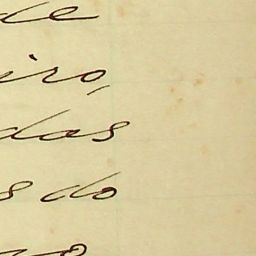 de
iro,
das
s do